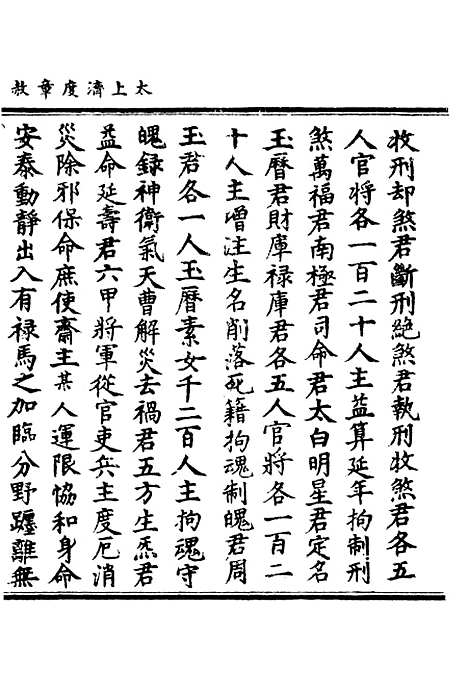 太上濟度章赦
收刑却煞君斷刑絕煞君執刑收煞君各五
人官將各一百二十人主益算延年拘制刑
煞萬福君南極君司命君太白明星君定名
玉曆君財庫禄庫君各五人官將各一百二
十人主增注生名削落死籍拘魂制魄君周
玉君各一人玉曆素女千二百人主拘魂守
魄録神衛氣天曹解災去禍君五方生炁君
益命延壽君六甲將軍從官吏兵主度厄消
災除邪保命庶使齋主某人運限協和身命
安泰動靜出入有禄馬之加臨分野躔離無